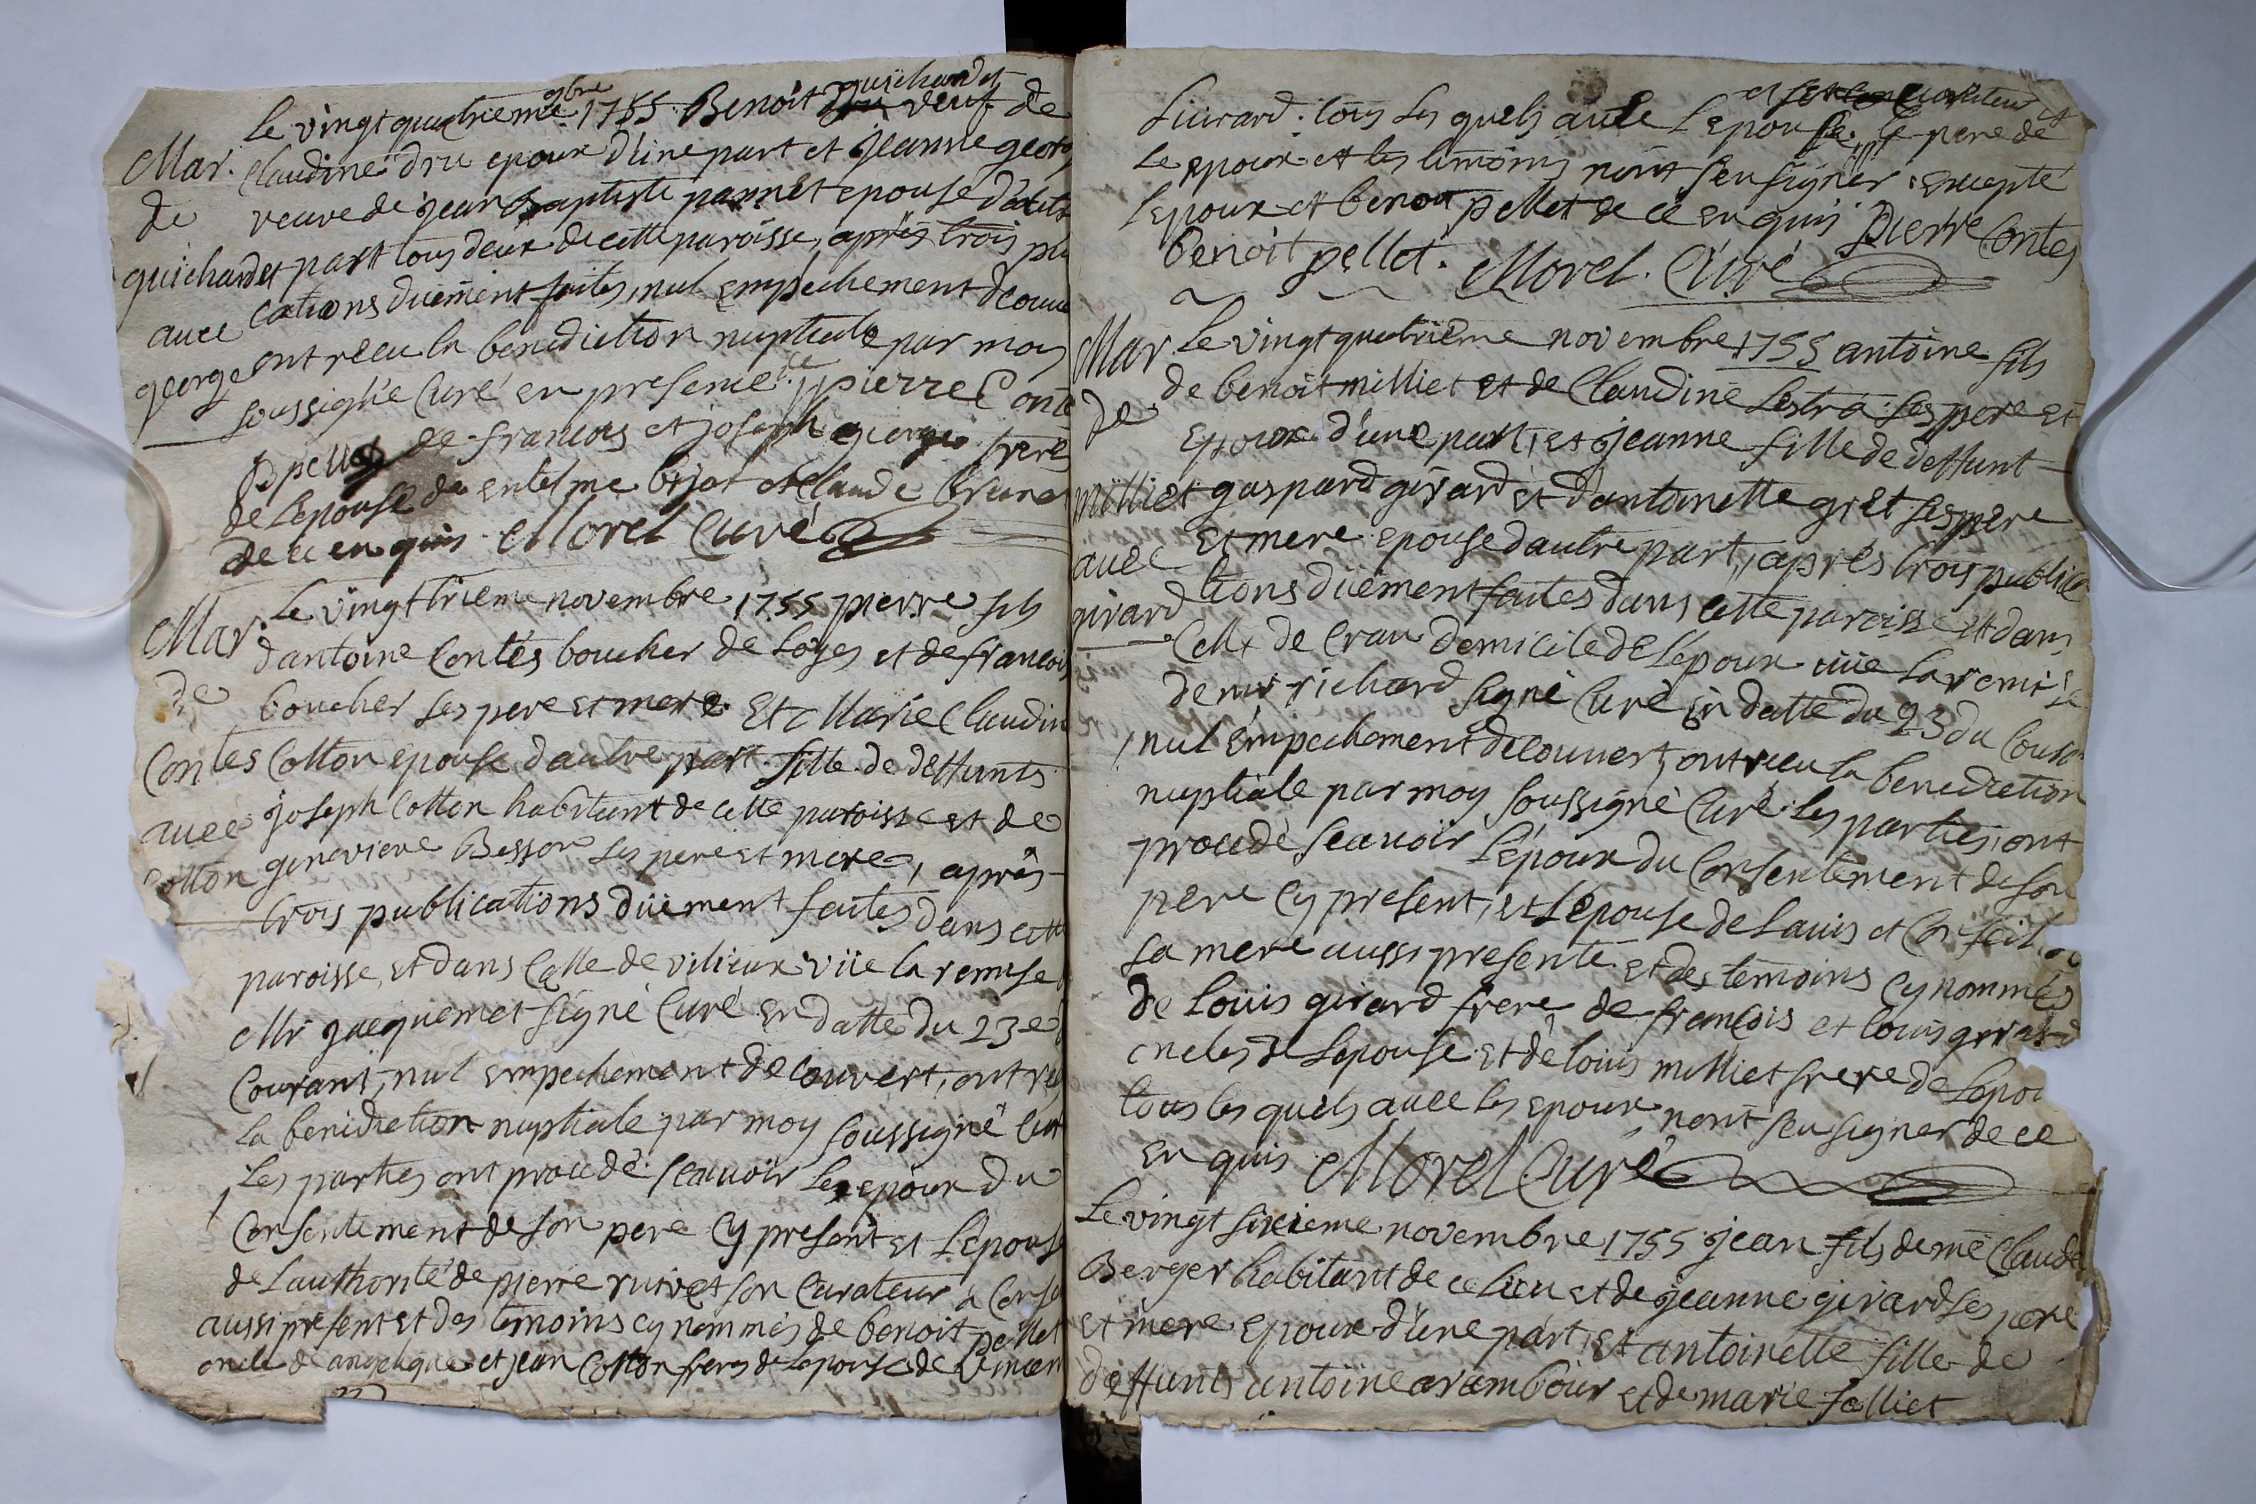 Le vingt quatrieme 9bre 1755 Benoit guichardet veuf de
Mar. Claudine dru epoux d'une part et jeanne george
de veuve de jean Baptiste pannet epouse d'autre
guichardet part tous deux de cette paroisse, après trois publi
cations düement faites, nul empechement decouv
avec ont receu la benediction nuptiale par moy
george soussigné Curé en presence de pierre Conte
de francois et joseph george freres
de Lepouse de entelme bijot et Claude brunet
de ce enquis. Morel Curé
Le vingttrieme novembre 1755 pierre fils
Mar. d'antoine Contés boucher de Loyes et de francoise
de boucher ses pere et mere. Et Marie Claudine
Contes Cotton epouse d'autre part. fille de deffunts
avec joseph Cotton habitant de cette paroisse et de
Cotton genevieve Besson ses pere et mere, après
trois publications düement faites dans cette
paroisse, et dans Celle de vilieux vüe la remise
Mr jacquemet signé Curé en datte du 23e
Courant, nul empechement decouvert, ont receu
La benediction nuptiale par moy soussigné Curé
Les parties ont procedé. scavoir Les epoux du
Consentement de son pere Cy present et L'epouse
de L'authorité de pierre ruivet son Curateur a Conse
aussi present et des temoins cy nommés de benoit pellet
oncle de angelique et jean Cotton freres de Lepouse de vincent
Siirard. tous Les quels avec L'epouse. Le pere de
et Curateur
Le epoux et les temoins n'ont sçu signer. excepté
l'epoux et benoit pellet de ce enquis pierre Contes
benoit pellet. Morel. Curé
Mar Le vingt quatrième novembre 1755 antoine fils
de de benoit milliet et de Claudine Lestra ses pere et
epoux d'une part, et jeanne fille de deffunt
milliet gaspard girard et d'antoinette griet ses pere
avec et mere epouse dautre part, après trois publica
girard tions düement faites dans cette paroisse et dans
Celle de Cran domicile de L'epoux vüe la remise
de mr richard signé Curé en datte du 23 du Couran
nul empechement decouvert, ont receu la benediction
nuptiale par moy soussigné Curé. les parties, ont
procedé scavoir L'epoux du Consentement de son
pere Cy present, et L'epouse de Lavis et Conseil de
sa mere aussi presente. et des temoins Cy nommés
de Loüis girard frere de françois et loüis girard
oncles de Lepouse et de loüis milliet frere de Lepou
tous les quels avec les epoux n'ont sçu signer de ce
enquis Morel Curé
Le vingt sixieme novembre 1755 jean fils de me Claude
Berger habitant de ce lieu et de jeanne girard ses pere
et mere epoux d'une part, et antoinette fille de
deffunts antoine arambour et de marie falliet